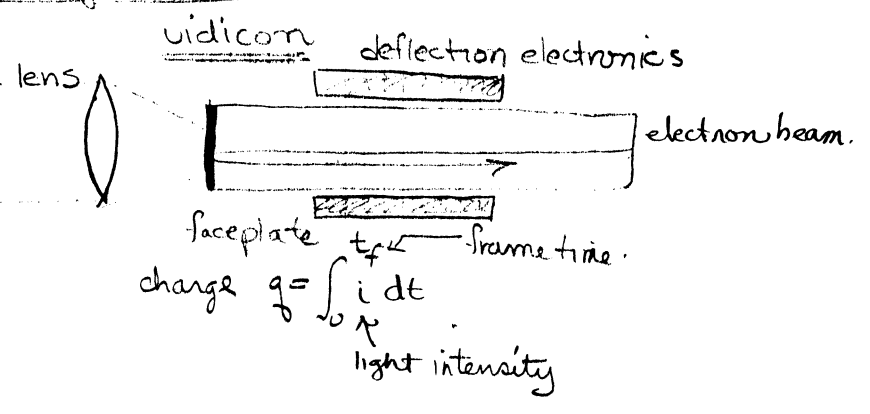 vidicon
deflection electronics
lens
electron beam.
faceplate
t_f ← frame time.
charge q = ∫₀ i dt
light intensity